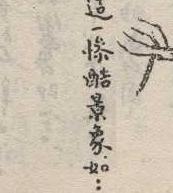 這一慘酷景象如：